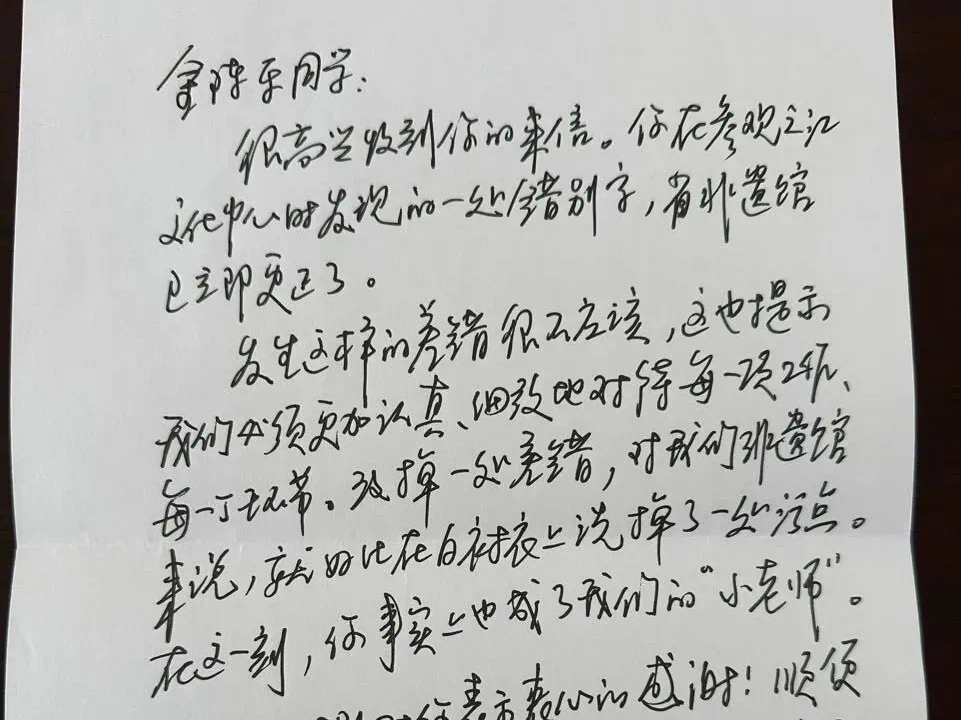 金陈乐同学：
很高兴收到你的来信。你在参观之江
文化中心时发现的一处错别字，省非遗馆
已立即更正了。
发生这样的差错很不应该，这也提示
我们必须更加认真、细致地对待每一项工作、
每一个环节。改掉一处差错，对我们非遗馆
来说，就好比在白衬衣上洗掉了一处污点。
在这一刻，你事实上也成了我们的“小老师”。
对你表示衷心的感谢！顺便